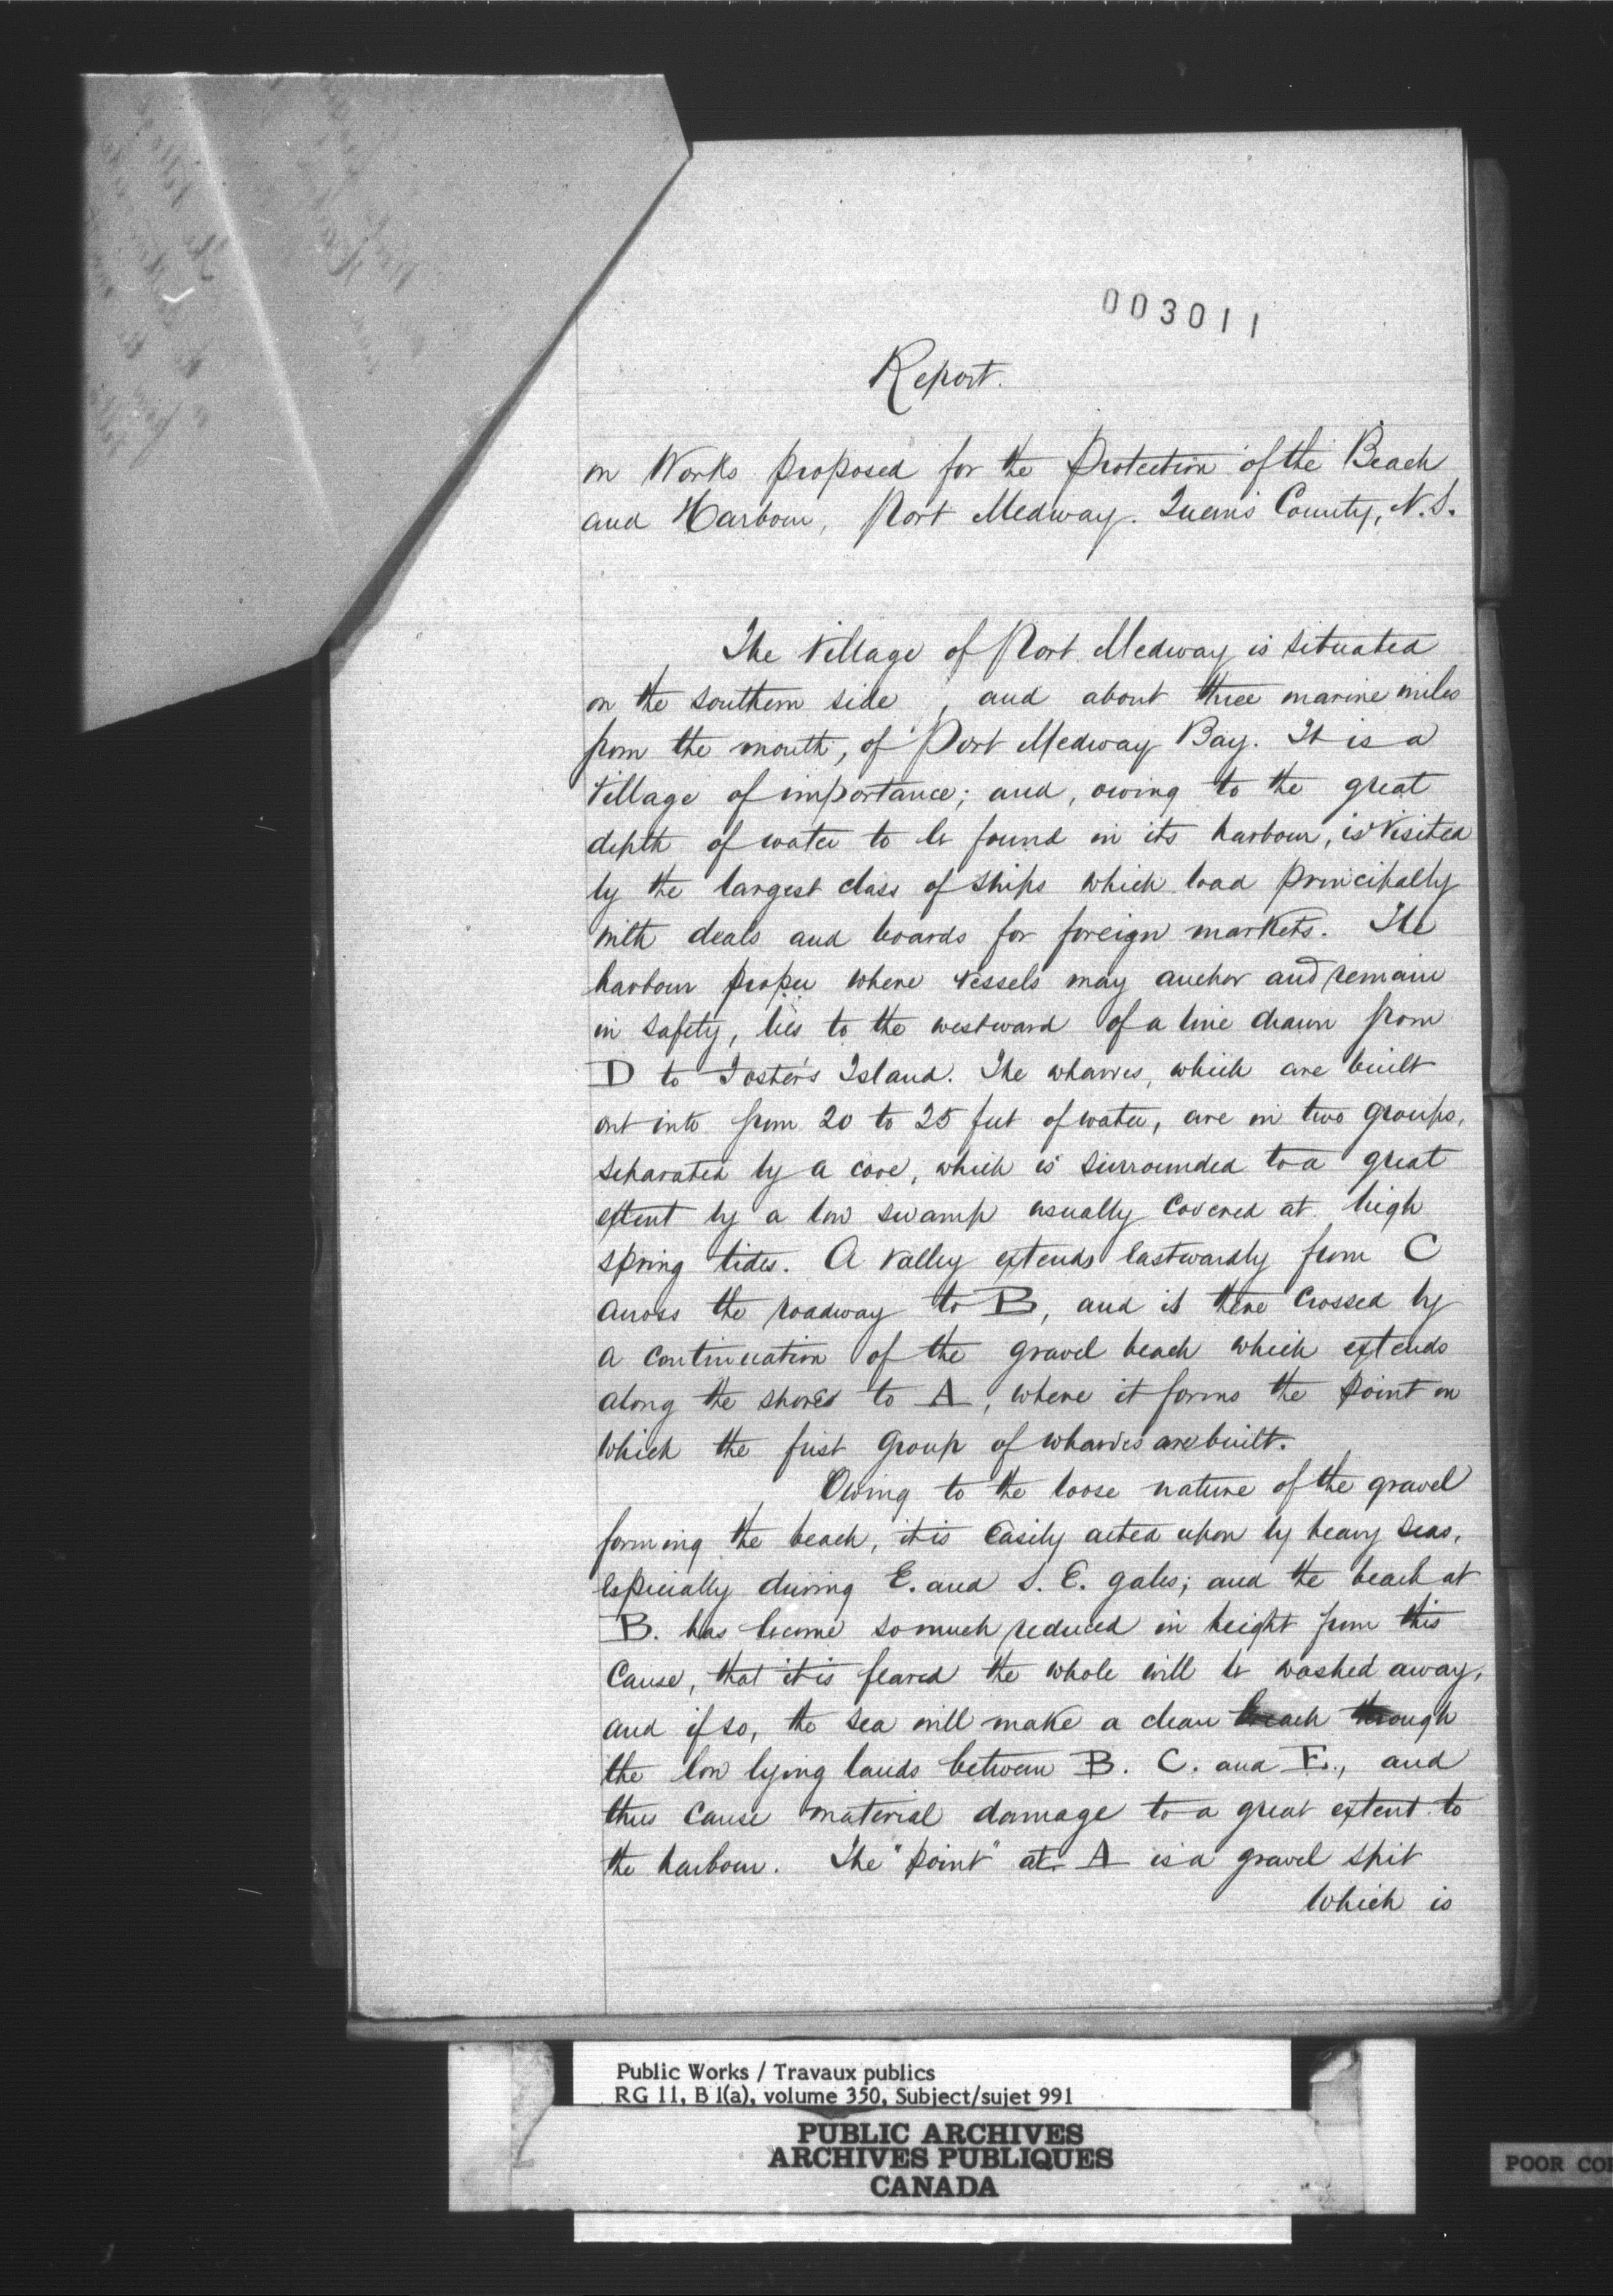 003011
Report.
on Works proposed for the Protection of the Beach
and Harbour, Port Medway. Queen's County, N.S.
The Village of Port Medway is situated
on the southern side, and about three marine miles
from the mouth, of Port Medway Bay. It is a
Village of importance; and, owing to the great
depth of water to be found in its harbour, is visited
by the largest class of ships which load principally
with deals and boards for foreign markets. The
harbour proper where vessels may anchor and remain
in safety, lies to the westward of a line drawn from
D to Foster's Island. The wharves, which are built
out into from 20 to 25 feet of water, are in two groups,
separated by a cove, which is surrounded to a great
extent by a low swamp usually covered at high
spring tides. A valley extends Eastwardly from C
across the roadway to B, and is there crossed by
a continuation of the gravel beach which extends
along the shores to A, where it forms the point on
which the first group of wharves are built.
Owing to the loose nature of the gravel
forming the beach, it is easily acted upon by heavy seas,
Especially during E. and S.E. gales; and the beach at
B. has become so much reduced in height from this
Cause, that it is feared the whole will be washed away,
and if so, the sea will make a clean breach through
the low lying lands between B. C. and E., and
thus cause material damage to a great extent to
the harbour. The "point" at A is a gravel spit
which is
Public Works / Travaux publics
RG 11, B 1(a), volume 350, Subject/sujet 991
PUBLIC ARCHIVES
ARCHIVES PUBLIQUES
CANADA
POOR COP